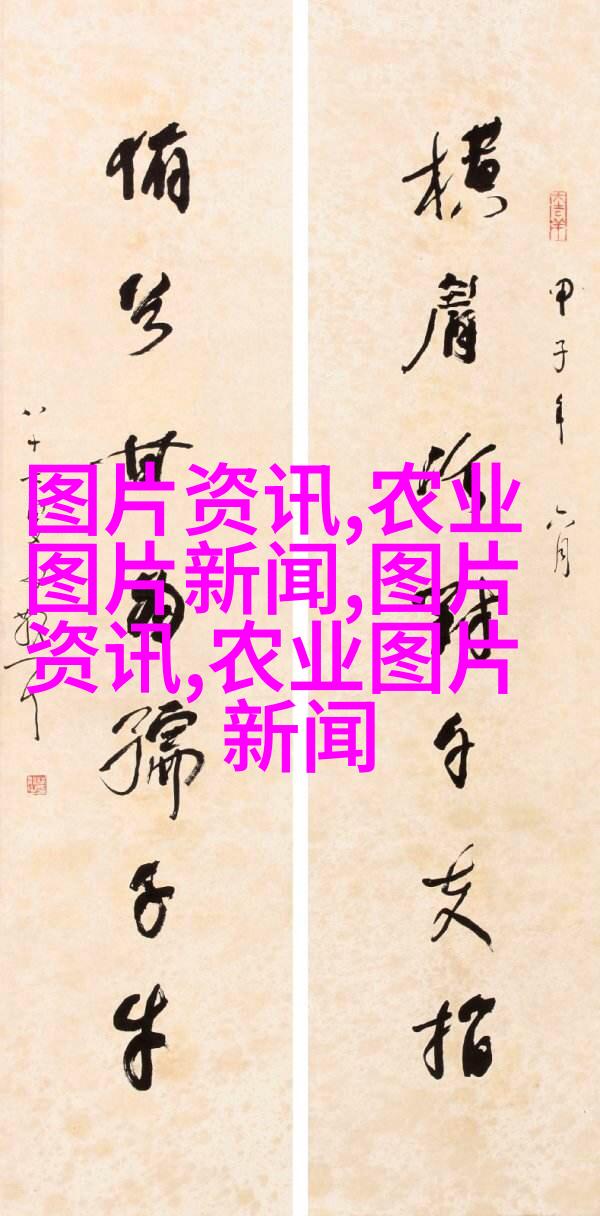 甲子年六月
横眉冷對千夫指
俯首甘為孺子牛
图片资讯,农业
图片新闻,图片
资讯,农业图片
新闻